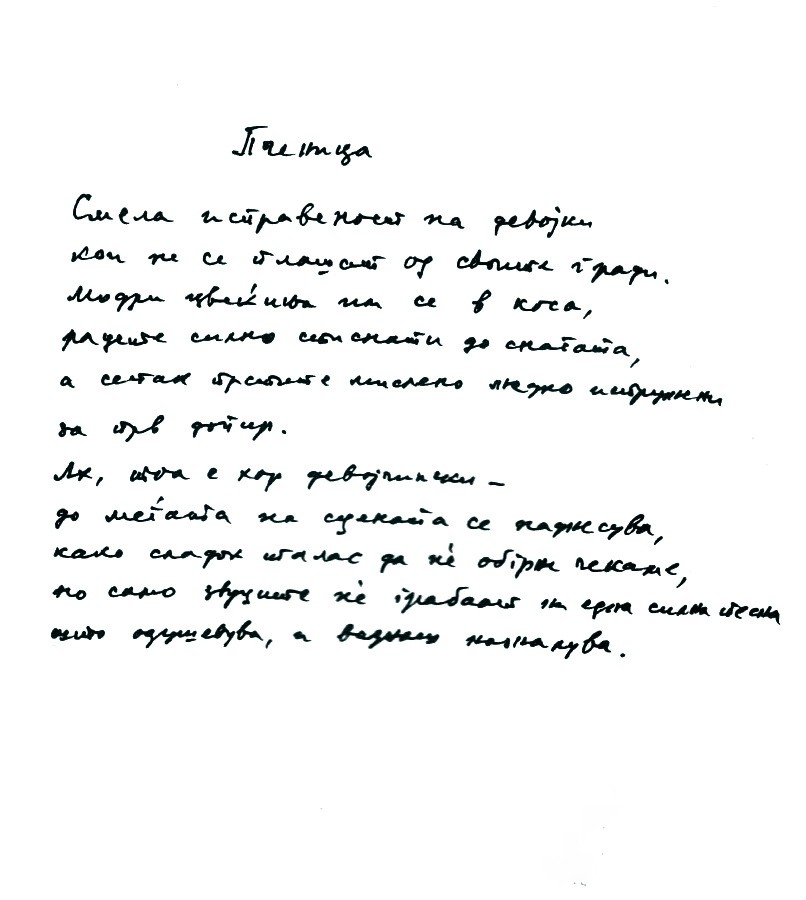 Пченица
Смела исправеност на девојки
кои не се плашат од своите гради.
Модри цвеќиња им се в коса,
рацете силно стиснати до снагата,
а сепак прстите мислено љупко испружени
за прв допир.
Ах, тоа е хор девојчински –
до меѓата на сцената се наднесува,
како сладок талас да нѐ обгрне чекаме,
но само звуците нѐ грабаат на една силна песна
што одушевува, и веднаш